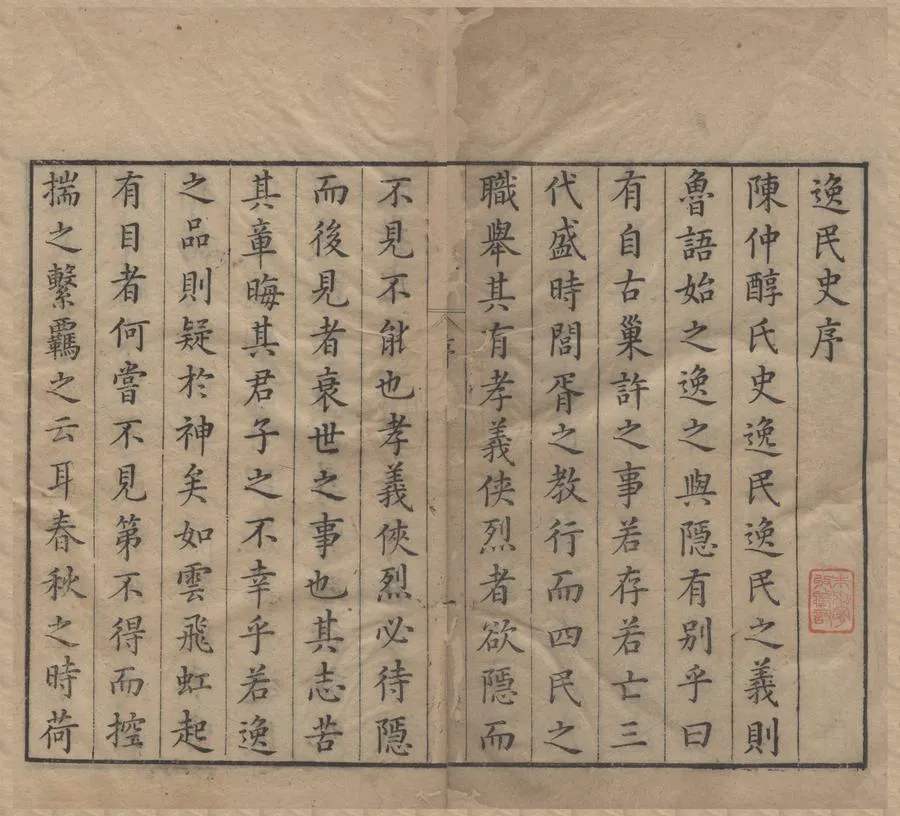 逸民史序
陳仲醇氏史逸民逸民之義則
魯語始之逸之與隱有別乎曰
有自古巢許之事若存若亡三
代盛時閭胥之教行而四民之
職舉其有孝義俠烈者欲隱而
序
一
不見不能也孝義俠烈必待隱
而後見者衰世之事也其志苦
其章晦其君子之不幸乎若逸
之品則疑於神矣如雲飛虹起
有目者何嘗不見第不得而控
揣之繫羈之云耳春秋之時荷